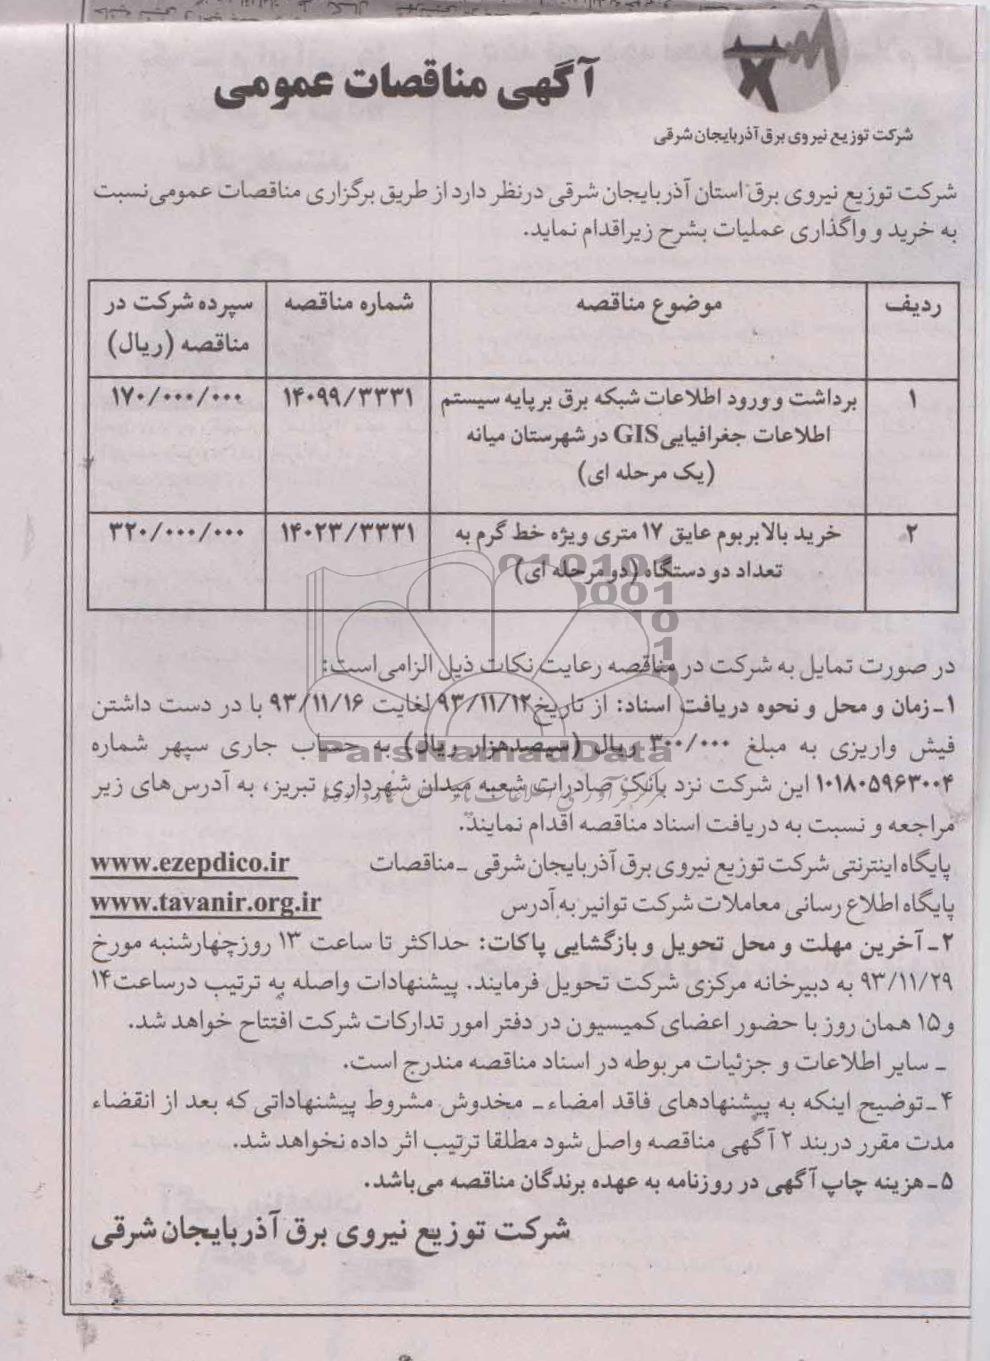 آگهی مناقصات عمومی
شرکت توزیع نیروی برق آذربایجان شرقی
شرکت توزیع نیروی برق استان آذربایجان شرقی درنظر دارد از طریق برگزاری مناقصات عمومی نسبت
به خرید و واگذاری عملیات بشرح زیر اقدام نماید.
ردیف موضوع مناقصه شماره مناقصه سپرده شرکت در
مناقصه (ریال)
۱ برداشت و ورود اطلاعات شبکه برق بر پایه سیستم ۱۴۰۹۹/۳۳۳۱ ۱۷۰/۰۰۰/۰۰۰
اطلاعات جغرافیایی GIS در شهرستان میانه
(یک مرحله ای)
۲ خرید بالابر بوم عایق ۱۷ متری ویژه خط گرم به ۱۴۰۲۳/۳۳۳۱ ۳۲۰/۰۰۰/۰۰۰
تعداد دو دستگاه (دو مرحله ای)
در صورت تمایل به شرکت در مناقصه رعایت نکات ذیل الزامی است:
۱-زمان و محل و نحوه دریافت اسناد: از تاریخ ۹۳/۱۱/۱۲ لغایت ۹۳/۱۱/۱۶ با در دست داشتن
فیش واریزی به مبلغ ۳۰۰/۰۰۰ ریال (سیصدهزار ریال) به حساب جاری سپهر شماره
۰۱۰۱۸۰۵۹۶۳۰۰۴ این شرکت نزد بانک صادرات شعبه میدان شهرداری تبریز، به آدرس‌های زیر
مراجعه و نسبت به دریافت اسناد مناقصه اقدام نمایند.
پایگاه اینترنتی شرکت توزیع نیروی برق آذربایجان شرقی -مناقصات www.ezepdico.ir
پایگاه اطلاع رسانی معاملات شرکت توانیر به آدرس www.tavanir.org.ir
۲-آخرین مهلت و محل تحویل و بازگشایی پاکات: حداکثر تا ساعت ۱۳ روز چهارشنبه مورخ
۹۳/۱۱/۲۹ به دبیرخانه مرکزی شرکت تحویل فرمایند. پیشنهادات واصله به ترتیب در ساعت ۱۴
و ۱۵ همان روز با حضور اعضای کمیسیون در دفتر امور تدارکات شرکت افتتاح خواهد شد.
- سایر اطلاعات و جزئیات مربوطه در اسناد مناقصه مندرج است.
۴-توضیح اینکه به پیشنهادهای فاقد امضاء- مخدوش مشروط پیشنهاداتی که بعد از انقضاء
مدت مقرر در بند ۲ آگهی مناقصه واصل شود مطلقا ترتیب اثر داده نخواهد شد.
۵-هزینه چاپ آگهی در روزنامه به عهده برندگان مناقصه می‌باشد.
شرکت توزیع نیروی برق آذربایجان شرقی
ParsNamadData